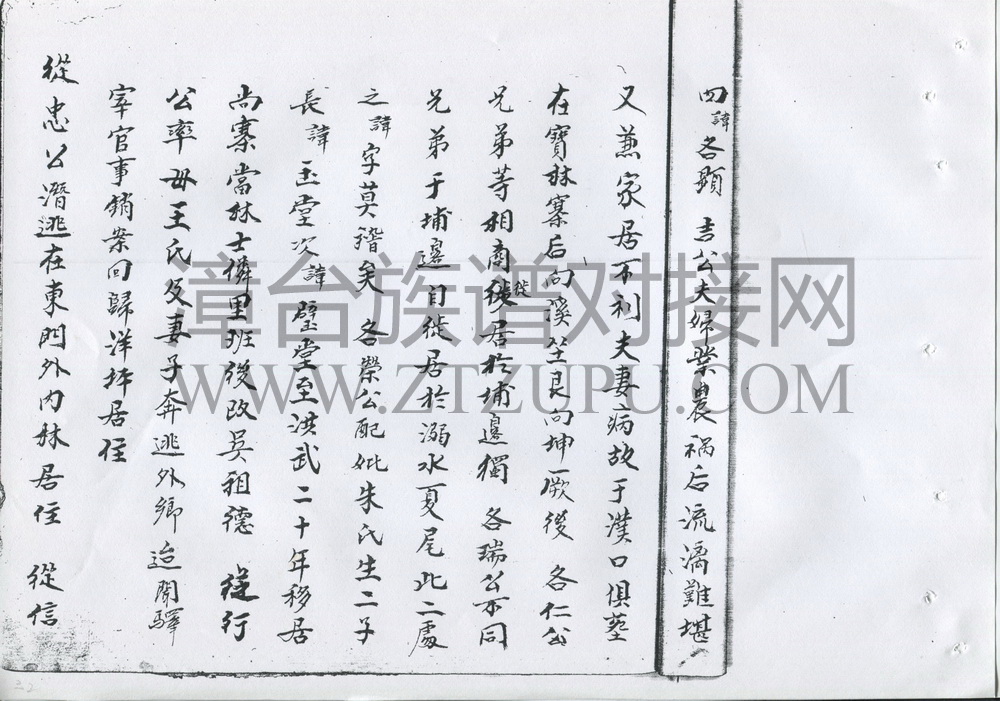 四諱各顯 吉公夫婦業農禍后流漓難堪
又兼家居不利夫妻病故于漢口俱塟
在寶林寨后向溪坐艮向坤厥後 各仁公
兄弟等相商徙居於埔邊獨 各瑞公不同
兄弟于埔邊自徙居於溺水夏尾此二處
之諱字莫稽矣 各榮公配妣朱氏生二子
長諱玉堂次諱璧堂至洪武二十年移居
尚寨當林士僯里班後改吳祖德 従行
公率母王氏及妻子奔逃外鄉迨聞驛
宰官事銷案回歸洋坪居住
從忠公潛逃在東門外內林居住 從信
漳台族谱对接网
WWW.ZTZUPU.COM
22